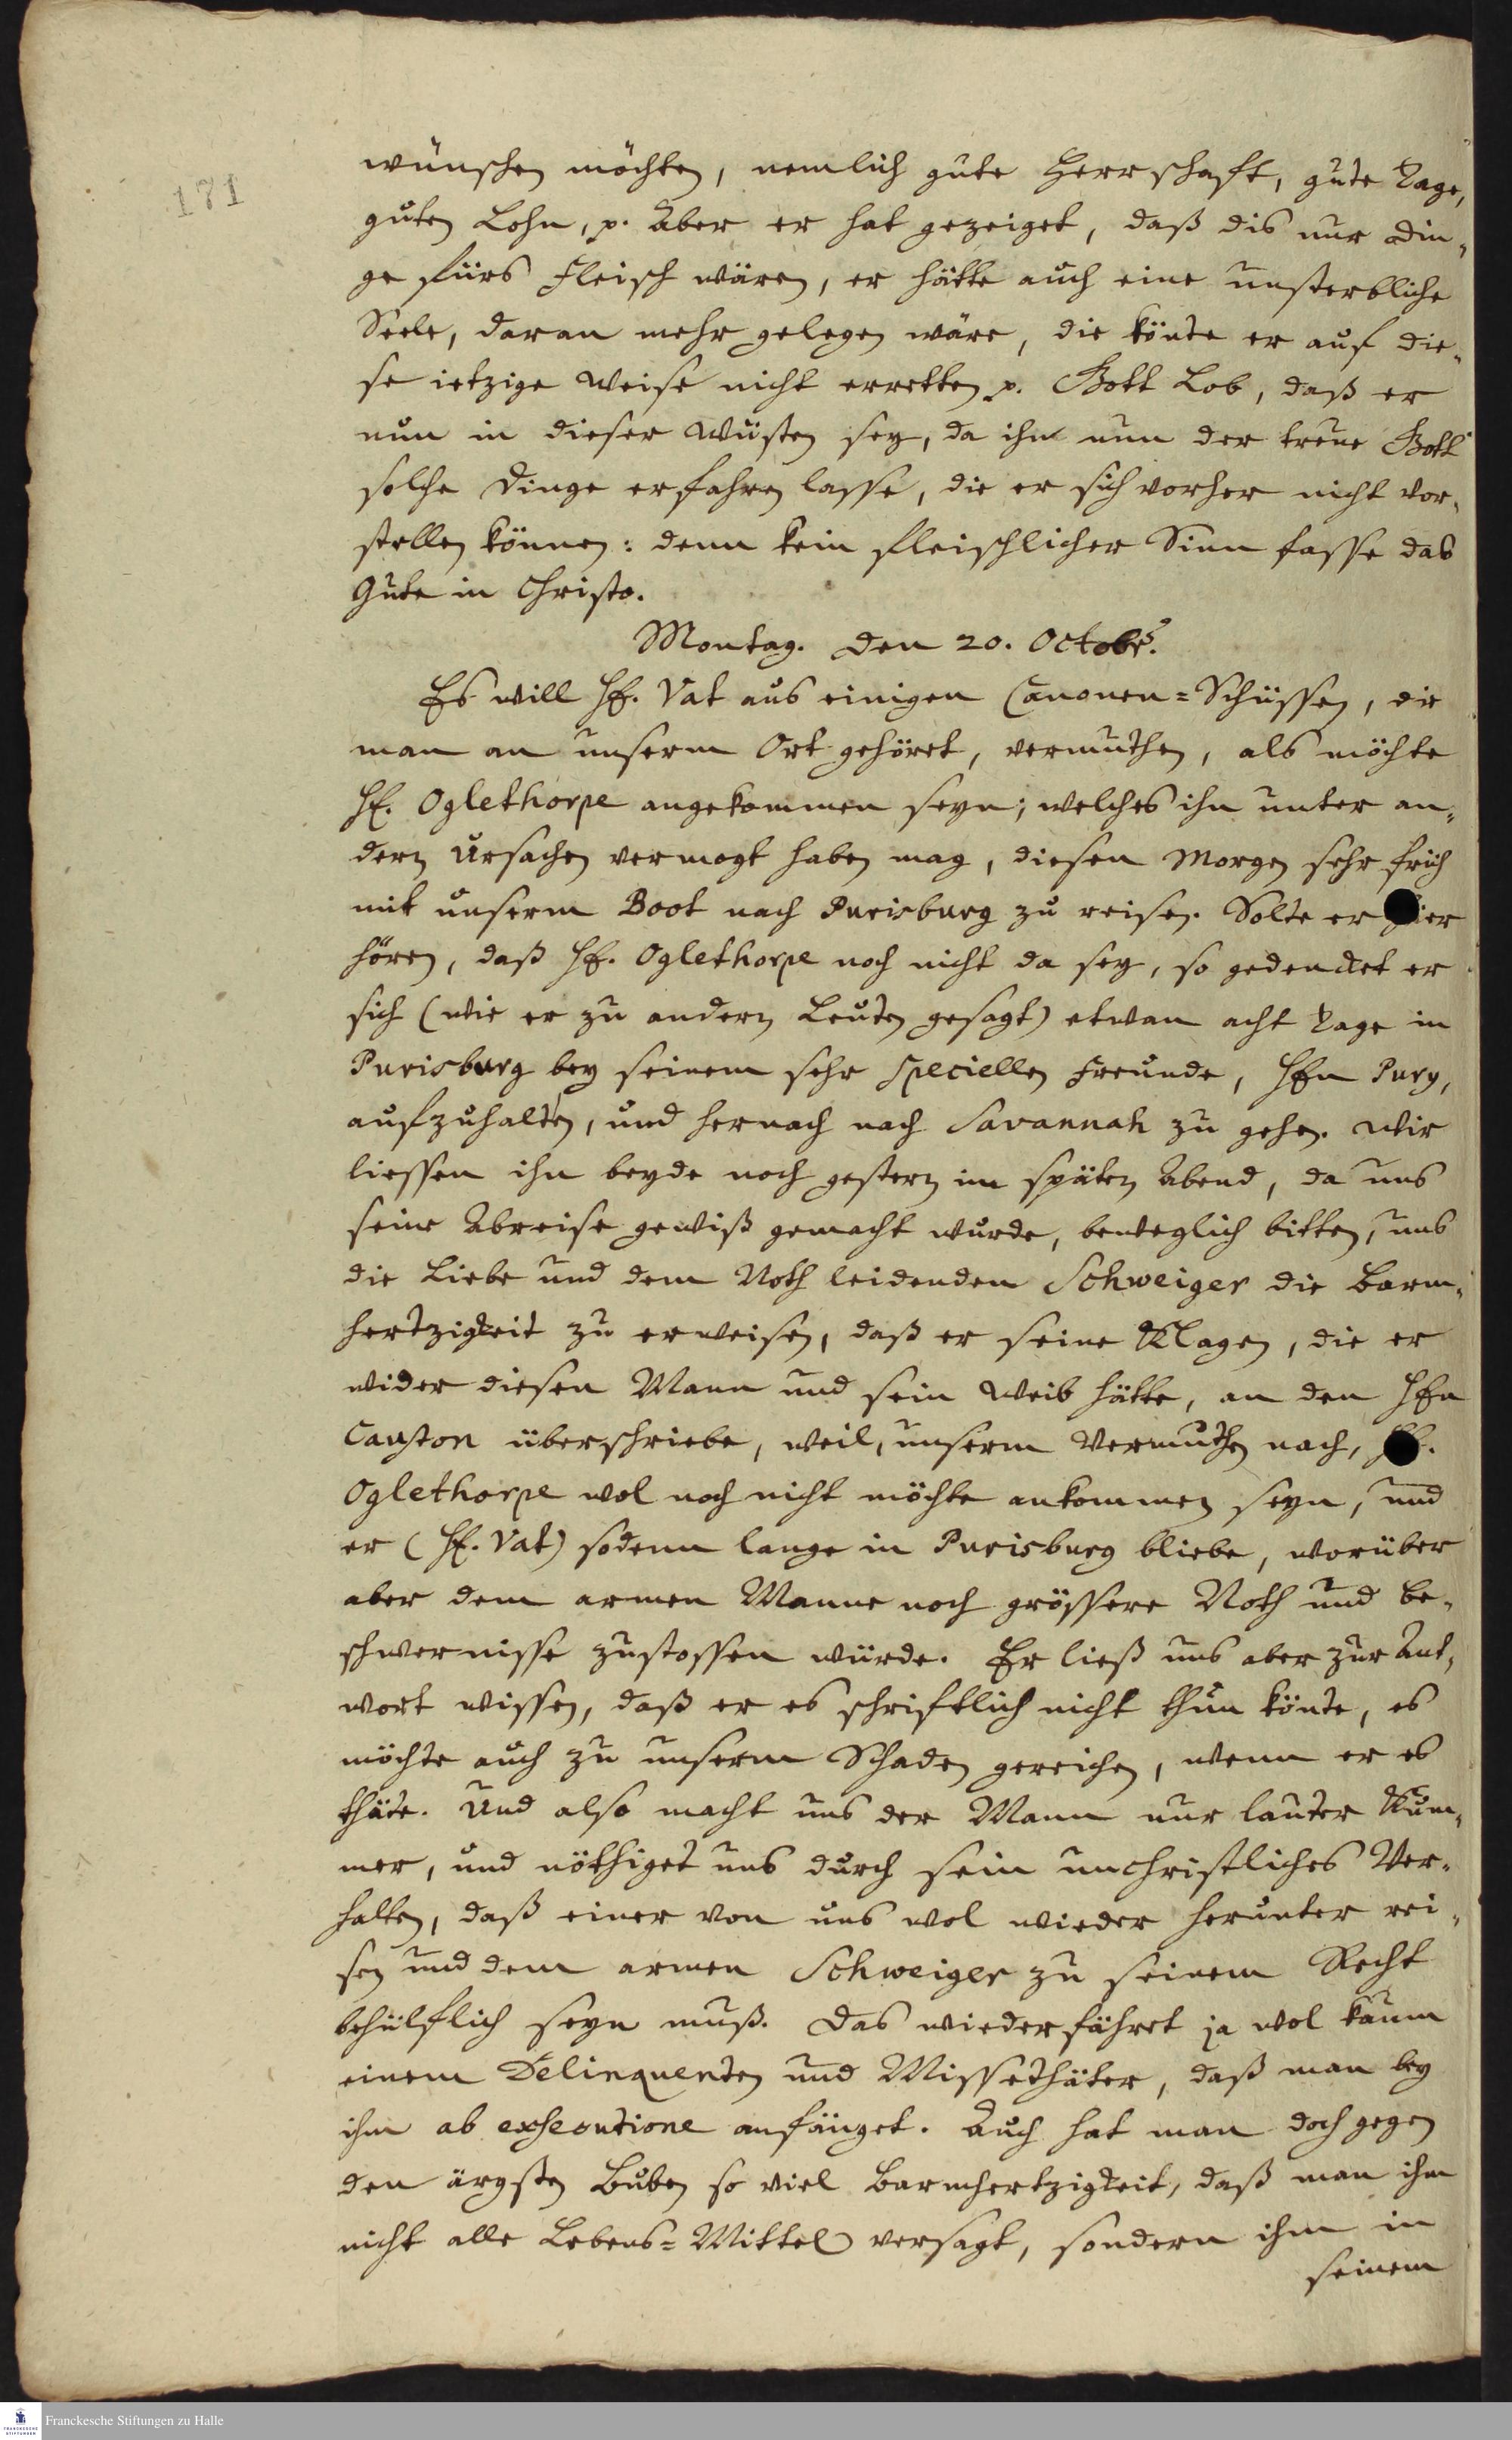 171
wünschen möchten, nemlich gute Herrschaft, gute Tage,
guten Lohn, p. Aber er hat gezeiget, daß dis nur Din-
ge fürs Fleisch wären, er hätte auch eine unsterbliche
Seele, daran mehr gelegen wäre, die könte er auf die-
se ietzige Weise nicht erretten p. Gott Lob, daß er
nun in dieser Wüsten sey, da ihn nun der treue Gott
solche Dinge erfahren lasse, die er sich vorher nicht vor-
stellen können: denn kein fleischlicher Sinn fasse das
Gute in Christo.
Montag. den 20. Octobr.
Es will Hr. Vat aus einigen Canonen=Schüssen, die
man an unserm Ort gehöret, vermuthen, als möchte
Hr. Oglethorpe angekommen seyn; welches ihn unter an-
dern Ursachen vermogt haben mag, diesen Morgen sehr früh
mit unserm Boot nach Purisburg zu reisen. Solte er hier
hören, daß Hr. Oglethorpe noch nicht da sey, so gedencket er
sich (wie er zu andern Leuten gesagt) etwan acht Tage in
Purisburg bey seinem sehr speciellen Freunde, Hrn Pury,
aufzuhalten, und hernach nach Savannah zu gehen. Wir
liessen ihn beyde noch gestern im späten Abend, da uns
seine Abreise gewiß gemacht wurde, beweglich bitten, uns
die Liebe und dem Noth leidenden Schweiger die Barm-
hertzigkeit zu erweisen, daß er seine Klagen, die er
wider diesen Mann und sein Weib hätte, an den Hrn
Causton überschriebe, weil, unserm Vermuthen nach, Hr.
Oglethorpe wol noch nicht möchte ankommen seyn, und
er (Hr. Vat) sodenn lange in Purisburg bliebe, worüber
aber dem armen Manne noch grössere Noth und Be-
schwernisse zustossen würde. Er ließ uns aber zur Ant-
wort wissen, daß er es schriftlich nicht thun könte, es
möchte auch zu unserm Schaden gereichen, wenn er es
thäte. Und also macht uns der Mann nur lauter Kum-
mer, und nöthiget uns durch sein unchristliches Ver-
halten, daß einer von uns wol wieder herunter rei-
sen und dem armen Schweiger zu seinem Recht
behülflich seyn muß. Das wiederfähret ja wol kaum
einem Delinquenten und Missethäter, daß man bey
ihm ab exsecutione anfänget. Auch hat man doch gegen
den ärgsten Buben so viel Barmhertzigkeit, daß man ihm
nicht alle Lebens=Mittel versagt, sondern ihm in
seinem
Franckesche Stiftungen zu Halle